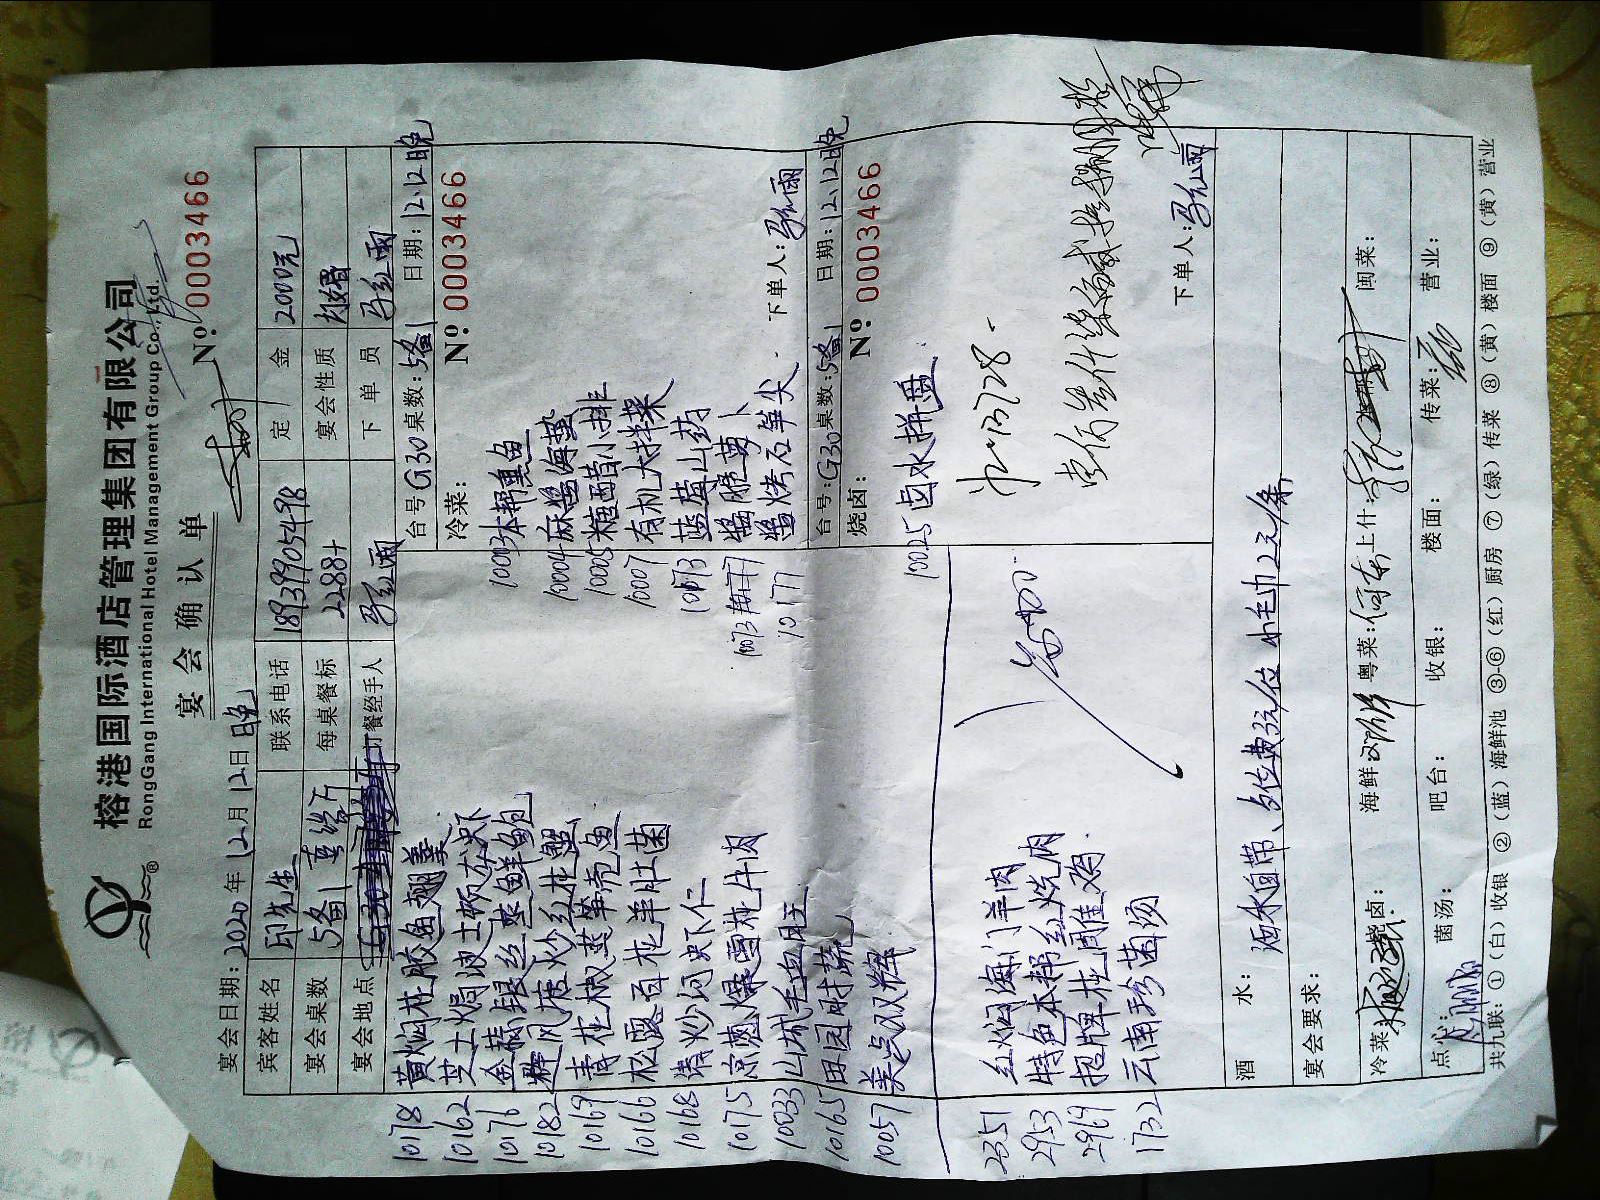 榕港国际酒店管理集团有限公司
RongGang International Hotel Management Group Co.,Ltd.
宴会确认单
Nº:0003466
宴会日期:2020年12月12日 晚
宾客姓名 印先生 联系电话 18939905498 定金 2000元
宴会桌数 5备1 每桌餐标 2288+ 宴会性质
宴会地点 订餐经手人 马红雨 下单员 马红雨
10178 黄焖花胶鱼翅羹
10162 芝士焗波士顿龙虾
10176 金蒜银丝蒸鲜鲍
10182 避风塘炒红花蟹
10169 青花椒蒸笋壳鱼
10166 松露百花羊肚菌
10168 滑炒河虾仁
10175 京葱爆雪花牛肉
10033 山城毛血旺
10165 田园时蔬
10057 美点双辉
2351 红焖海门羊肉
2953 特色本帮红烧肉
2969 招牌花雕鸡
1732 云南珍菌汤
台号:G30 桌数:5备1 日期:12.12晚
冷菜:
Nº:0003466
10003 本帮熏鱼
10004 麻酱海蜇
10005 糖醋小排
10007 有机大拌菜
10173 蓝莓山药
酱胆萝卜
10177 酱烤石笋尖
下单人:马红雨
台号:G30 桌数:5备1 日期:12.12晚
烧卤:
Nº:0003466
10025 卤水拼盘
下单人:马红雨
酒水: 酒水自带、占位费3元/位 小毛巾2元/条
宴会要求:
冷菜: 烧卤: 海鲜: 粤菜: 上什: 闽菜:
点心: 菌汤: 吧台: 收银: 楼面: 传菜: 营业:
共九联: ①(白)收银 ②(蓝)海鲜池 ③-⑥(红)厨房 ⑦(绿)传菜 ⑧(黄)楼面 ⑨(黄)营业